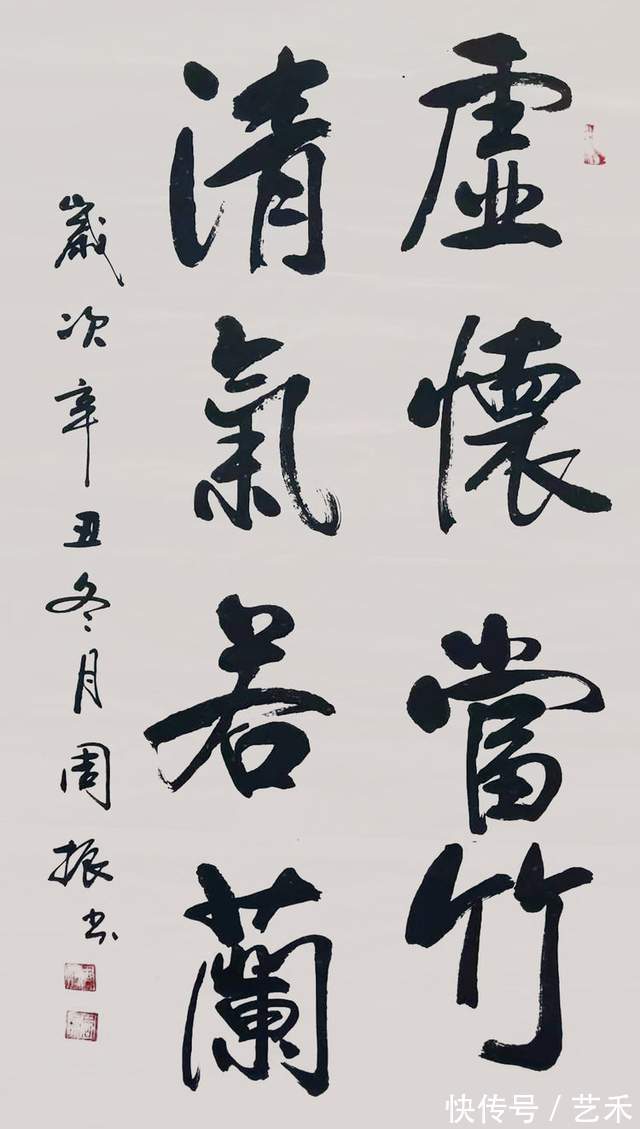 虛懷當竹
清氣若蘭
歲次辛丑冬月周振书
快传号 / 艺禾